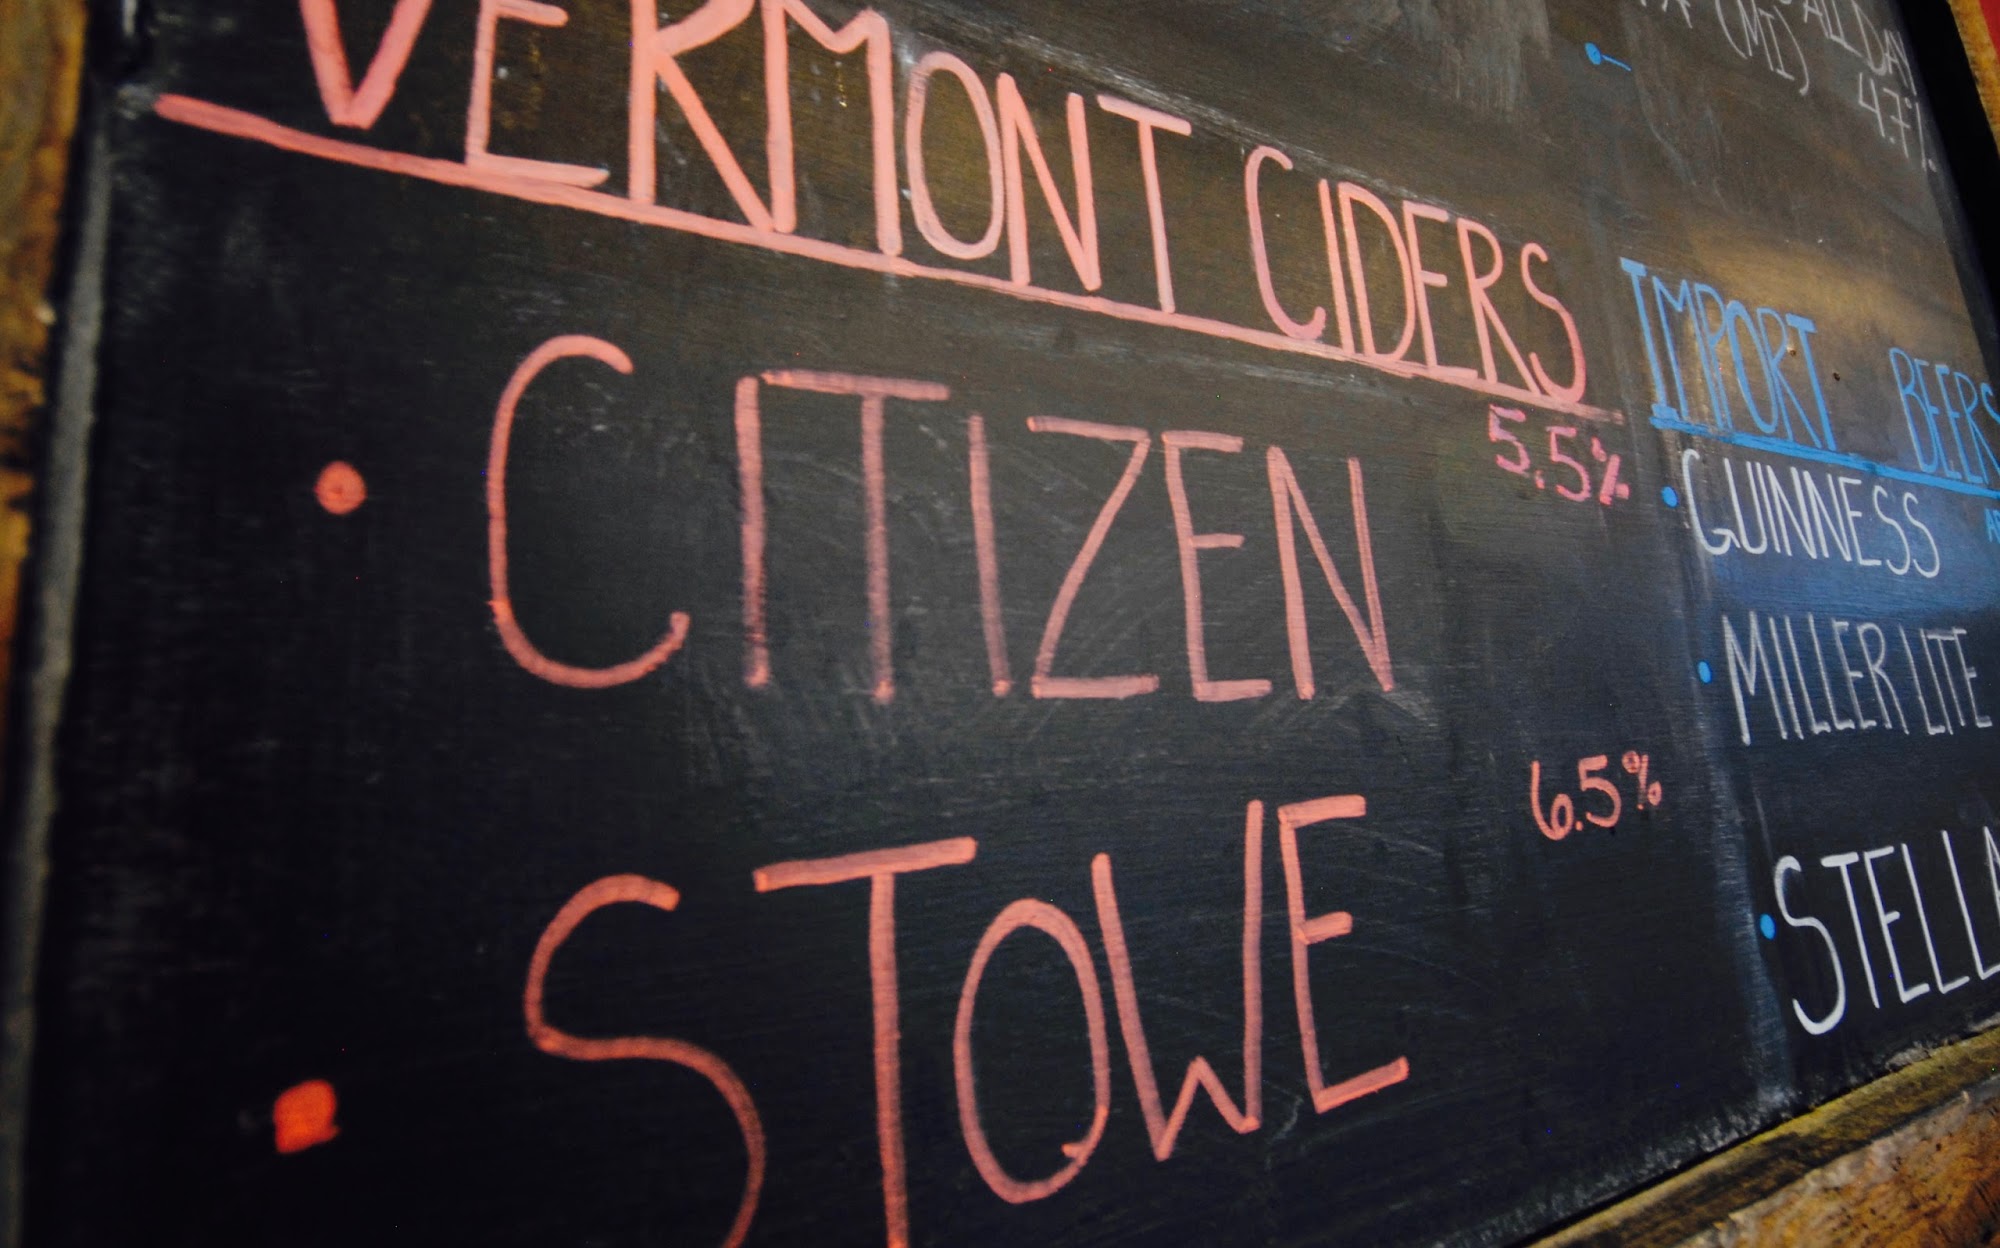 VERMONT CIDERS
CITIZEN 5.5%
STOWE 6.5%
ALL DAY
(MI) 4.7%
IMPORT BEERS
GUINNESS
MILLER LITE
STELLA